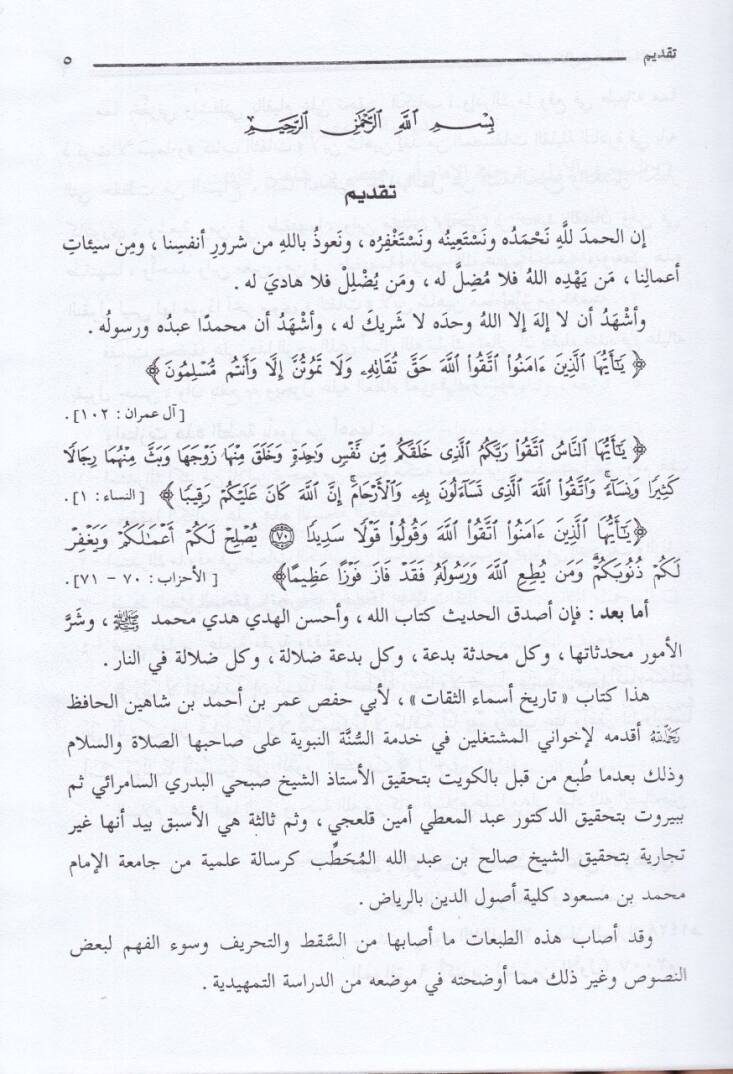 تقديم ٥
بِسْمِ اللَّهِ الرَّحْمَٰنِ الرَّحِيمِ
تقديم
إن الحمدَ للَّهِ نَحْمَدُه ونَسْتَعِينُه ونَسْتَغْفِرُه ، ونَعوذُ باللهِ من شرورِ أنفسِنا ، ومِن سيئاتِ
أعمالِنا ، مَن يَهْدِه اللهُ فلا مُضلَّ له ، ومَن يُضْلِلْ فلا هاديَ له .
وأشْهَدُ أن لا إلهَ إلا اللهُ وحدَه لا شريكَ له ، وأشْهَدُ أن محمدًا عبدُه ورسولُه .
﴿ يَٰٓأَيُّهَا ٱلَّذِينَ ءَامَنُوا۟ ٱتَّقُوا۟ ٱللَّهَ حَقَّ تُقَاتِهِۦ وَلَا تَمُوتُنَّ إِلَّا وَأَنتُم مُّسْلِمُونَ ﴾
[آل عمران : ١٠٢] .
﴿ يَٰٓأَيُّهَا ٱلنَّاسُ ٱتَّقُوا۟ رَبَّكُمُ ٱلَّذِى خَلَقَكُم مِّن نَّفْسٍ وَٰحِدَةٍ وَخَلَقَ مِنْهَا زَوْجَهَا وَبَثَّ مِنْهُمَا رِجَالًا
كَثِيرًا وَنِسَآءً ۚ وَٱتَّقُوا۟ ٱللَّهَ ٱلَّذِى تَسَآءَلُونَ بِهِۦ وَٱلْأَرْحَامَ ۚ إِنَّ ٱللَّهَ كَانَ عَلَيْكُمْ رَقِيبًا ﴾ [النساء : ١] .
﴿ يَٰٓأَيُّهَا ٱلَّذِينَ ءَامَنُوا۟ ٱتَّقُوا۟ ٱللَّهَ وَقُولُوا۟ قَوْلًا سَدِيدًا ۝٧٠ يُصْلِحْ لَكُمْ أَعْمَٰلَكُمْ وَيَغْفِرْ
لَكُمْ ذُنُوبَكُمْ ۗ وَمَن يُطِعِ ٱللَّهَ وَرَسُولَهُۥ فَقَدْ فَازَ فَوْزًا عَظِيمًا ﴾ [الأحزاب : ٧٠ - ٧١] .
أما بعد : فإن أصدق الحديث كتاب الله ، وأحسن الهدي هدي محمد ﷺ ، وشَرَّ
الأمور محدثاتها ، وكل محدثة بدعة ، وكل بدعة ضلالة ، وكل ضلالة في النار .
هذا كتاب «تاريخ أسماء الثقات» ، لأبي حفص عمر بن أحمد بن شاهين الحافظ
رَحِمَهُ اللهُ أقدمه لإخواني المشتغلين في خدمة السُّنَّة النبوية على صاحبها الصلاة والسلام
وذلك بعدما طُبع من قبل بالكويت بتحقيق الأستاذ الشيخ صبحي البدري السامرائي ثم
ببيروت بتحقيق الدكتور عبد المعطي أمين قلعجي ، وثم ثالثة هي الأسبق بيد أنها غير
تجارية بتحقيق الشيخ صالح بن عبد الله المُحَطِّب كرسالة علمية من جامعة الإمام
محمد بن مسعود كلية أصول الدين بالرياض .
وقد أصاب هذه الطبعات ما أصابها من السَّقط والتحريف وسوء الفهم لبعض
النصوص وغير ذلك مما أوضحته في موضعه من الدراسة التمهيدية .